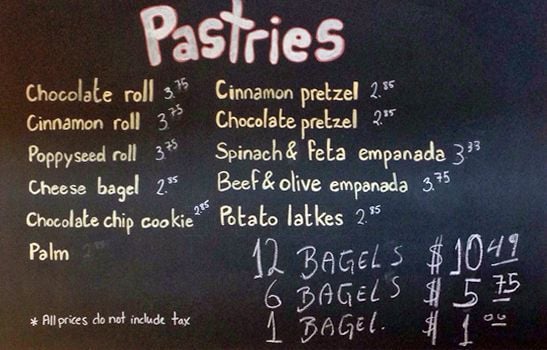 Pastries
Chocolate roll 3.75
Cinnamon roll 3.75
Poppyseed roll 3.75
Cheese bagel 2.85
Chocolate chip cookie 2.85
Palm 2.85
Cinnamon pretzel 2.85
Chocolate pretzel 2.85
Spinach & feta empanada 3.33
Beef & olive empanada 3.75
Potato latkes 2.85
12 BAGEL'S $10.49
6 BAGEL'S $5.75
1 BAGEL. $1.00
* All prices do not include tax